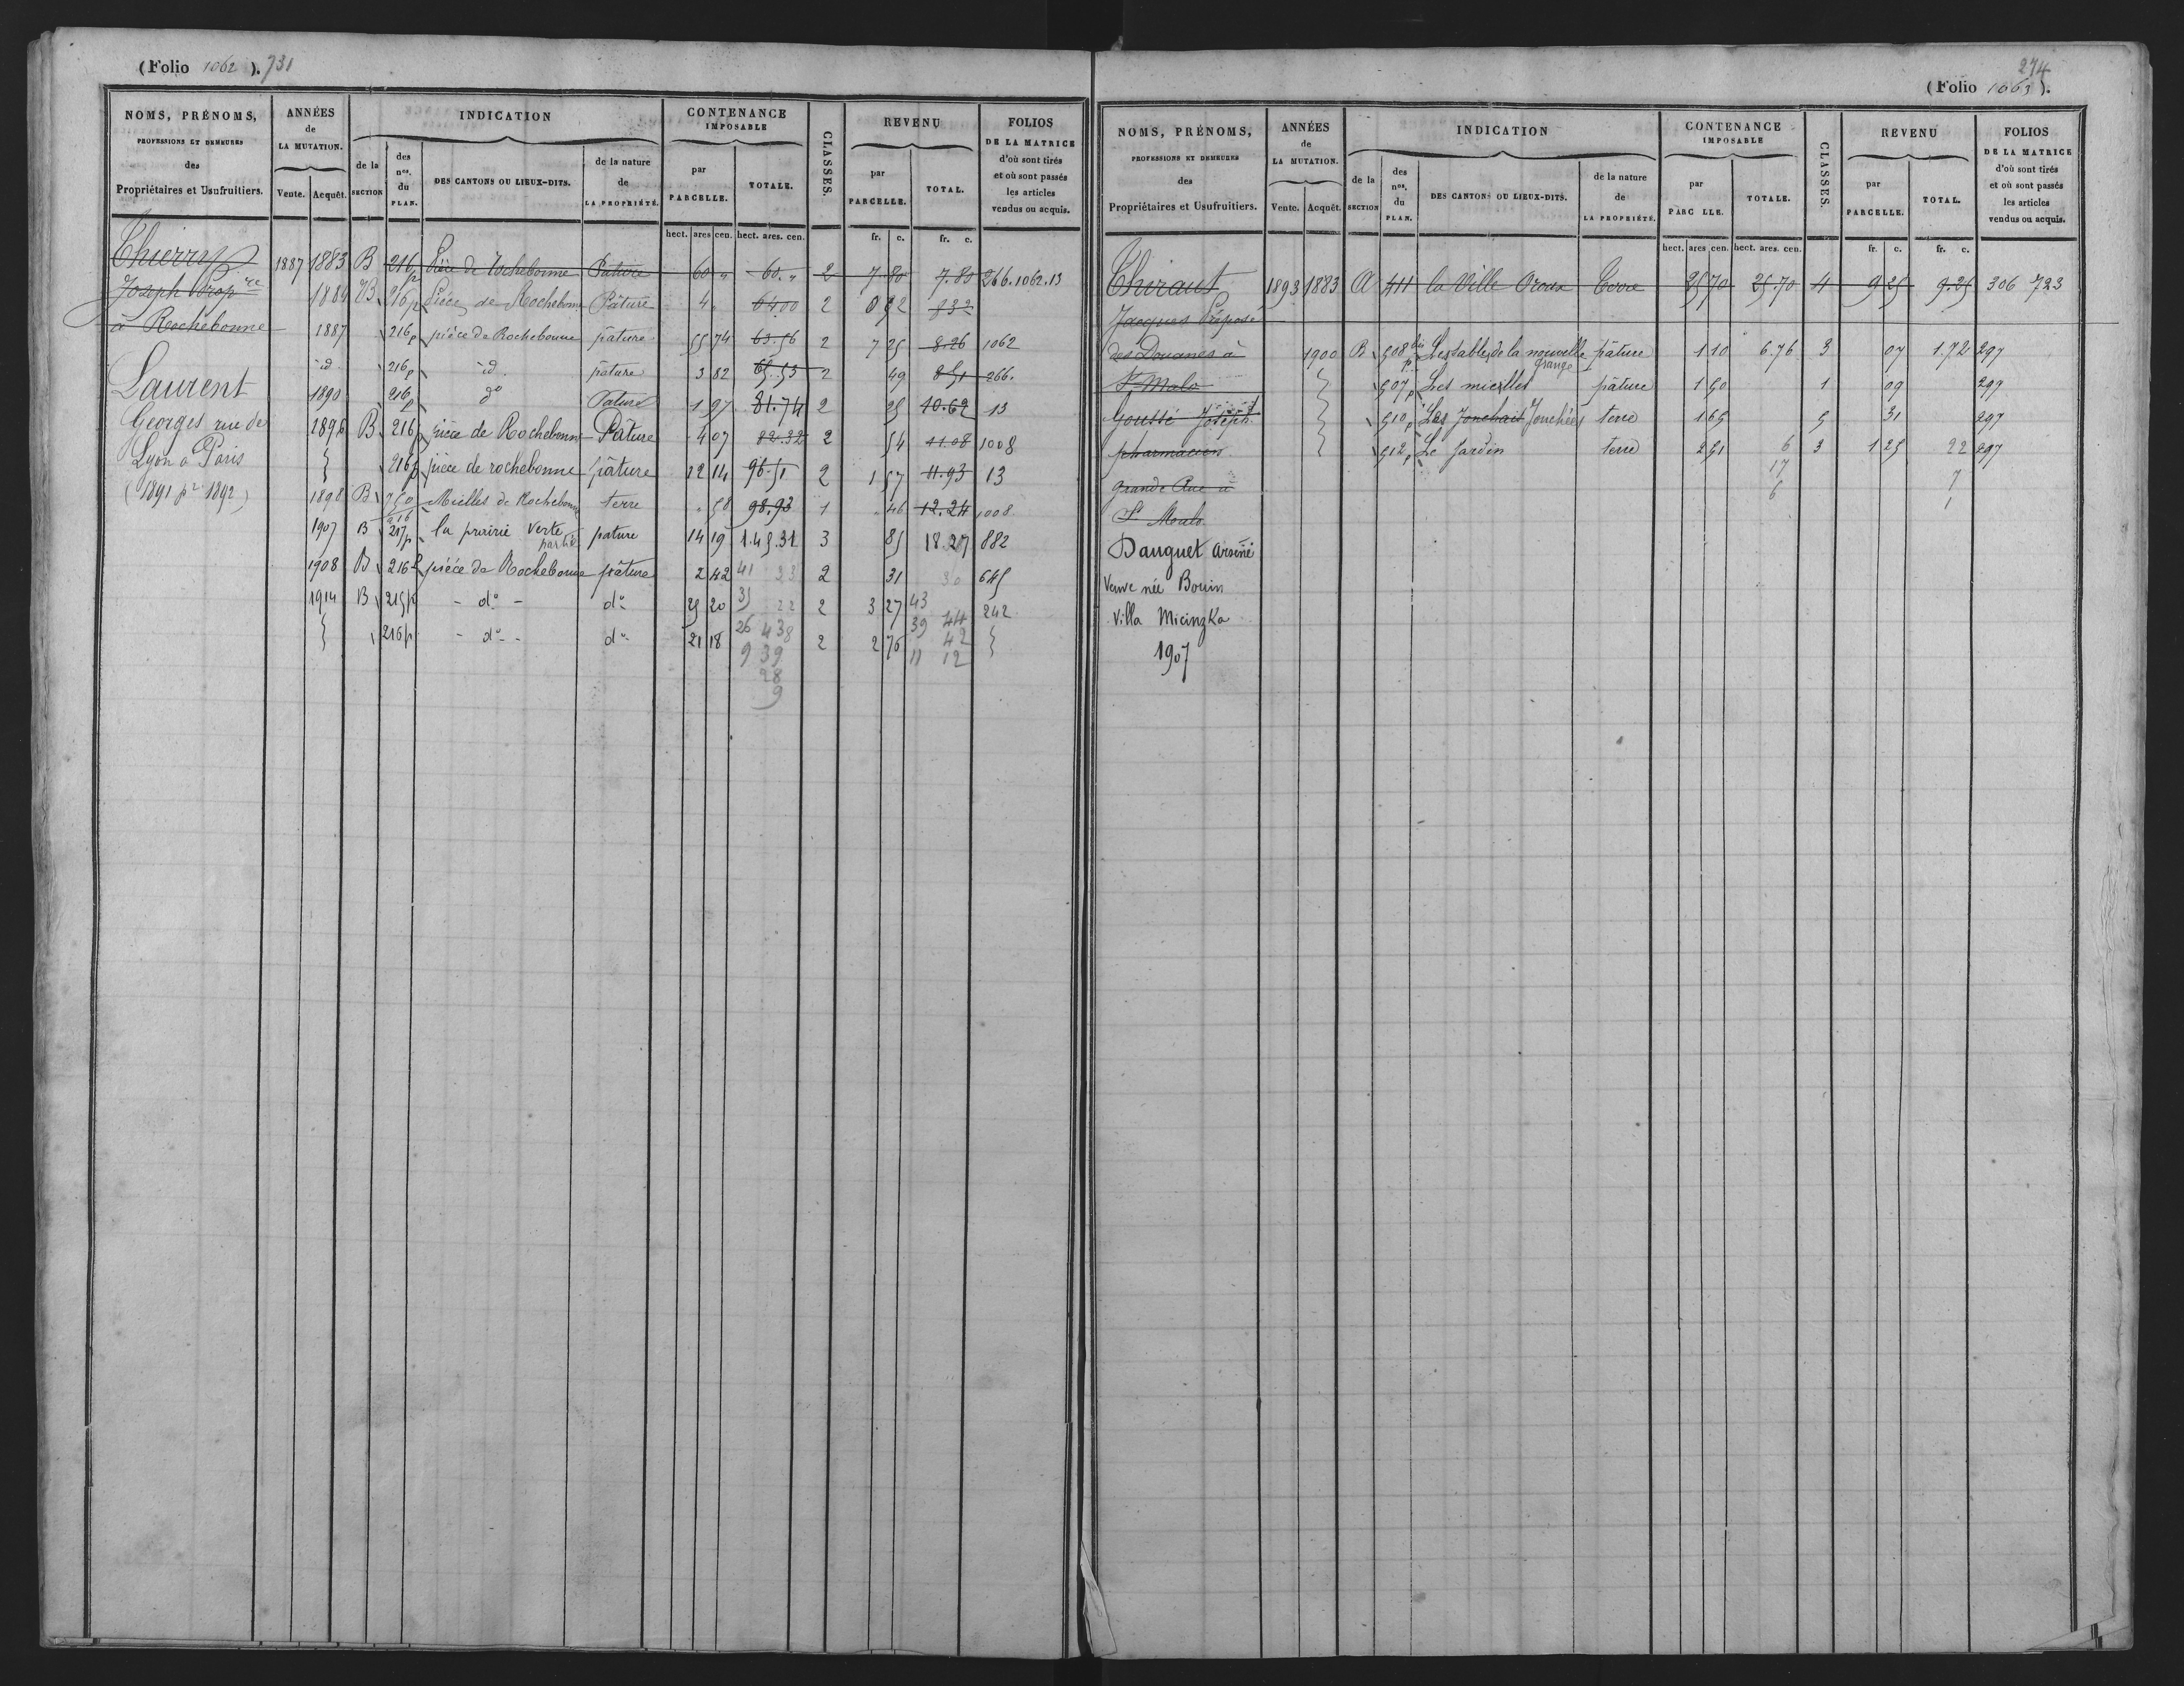 (Folio 1062). 731
NOMS, PRÉNOMS, PROFESSIONS ET DEMEURES des Propriétaires et Usufruitiers.
ANNÉES de LA MUTATION. Vente. Acquêt.
INDICATION de la SECTION des nos. du PLAN. DES CANTONS OU LIEUX-DITS. de la nature de LA PROPRIÉTÉ.
CONTENANCE IMPOSABLE par PARCELLE. TOTALE.
CLASSES.
REVENU par PARCELLE. TOTAL.
FOLIOS DE LA MATRICE d'où sont tirés et où sont passés les articles vendus ou acquis.
hect. ares cen. hect. ares. cen. fr. c. fr. c.
Thierry
Joseph Propre
à Rochebonne
Laurent
Georges rue de
Lyon à Paris
(1891 pr 1892)
1887 1883 B 216p Pièce de Rochebonne Pâture 60 " 60. " 2 7.80 7.80 266.1062.13
1884 B 216p Pièce de Rochebonne Pâture 4 " 6400 2 0 52 832
1887 216p pièce de Rochebonne pâture 55 74 63.56 2 7 25 8.26 1062
id. 216p id. pâture 3 82 65.53 2 49 8 51 266.
1890 216p do Pature 1 97 81.74 2 25 10.62 13
1896 B 216p pièce de Rochebonne Pâture 4 07 82.32 2 54 11.08 1008
216p pièce de rochebonne pâture 12 14 96.51 2 1 57 11.93 13
1898 B 750 Mielles de Rochebonne terre " 58 98.93 1 46 12.24 1008
1907 B 216 217p la prairie Verte partie pature 14 19 1.45.31 3 85 18.27 882
1908 B 216p pièce de Rochebonne pâture 2 42 41 23 2 31 30 645
1914 B 215p - do - do 25 20 35 22 2 3 27 43 44 242
216p - do - do 21 18 26 438 2 2 76 39 42
9 39 11 12
28
9
274
(Folio 1063).
NOMS, PRÉNOMS, PROFESSIONS ET DEMEURES des Propriétaires et Usufruitiers.
ANNÉES de LA MUTATION. Vente. Acquêt.
INDICATION de la SECTION des nos. du PLAN. DES CANTONS OU LIEUX-DITS. de la nature de LA PROPRIÉTÉ.
CONTENANCE IMPOSABLE par PARC LLE. TOTALE.
CLASSES.
REVENU par PARCELLE. TOTAL.
FOLIOS DE LA MATRICE d'où sont tirés et où sont passés les articles vendus ou acquis.
hect. ares cen. hect. ares. cen. fr. c. fr. c.
Thiraut
Jacques Préposé
des Douanes à
St Malo
Goussé Joseph
pharmacien
grande Rue à
St Malo
Dauguet Arsène
Veuve née Bouin
Villa Micinzka
1907
1893 1883 A 411 la Ville Oroux Terre 25 70 25.70 4 9 25 9.25 306 723
1900 B 508 bis p Les sables de la nouvelle grange pâture 1 10 6.76 3 07 1.72 297
507p Les mielles pâture 1 50 1 09 299
510p Les Jonchait Jonchées terre 1 65 5 31 297
512p Le Jardin terre 2 51 6 3 1 25 22 297
17 7
6 1